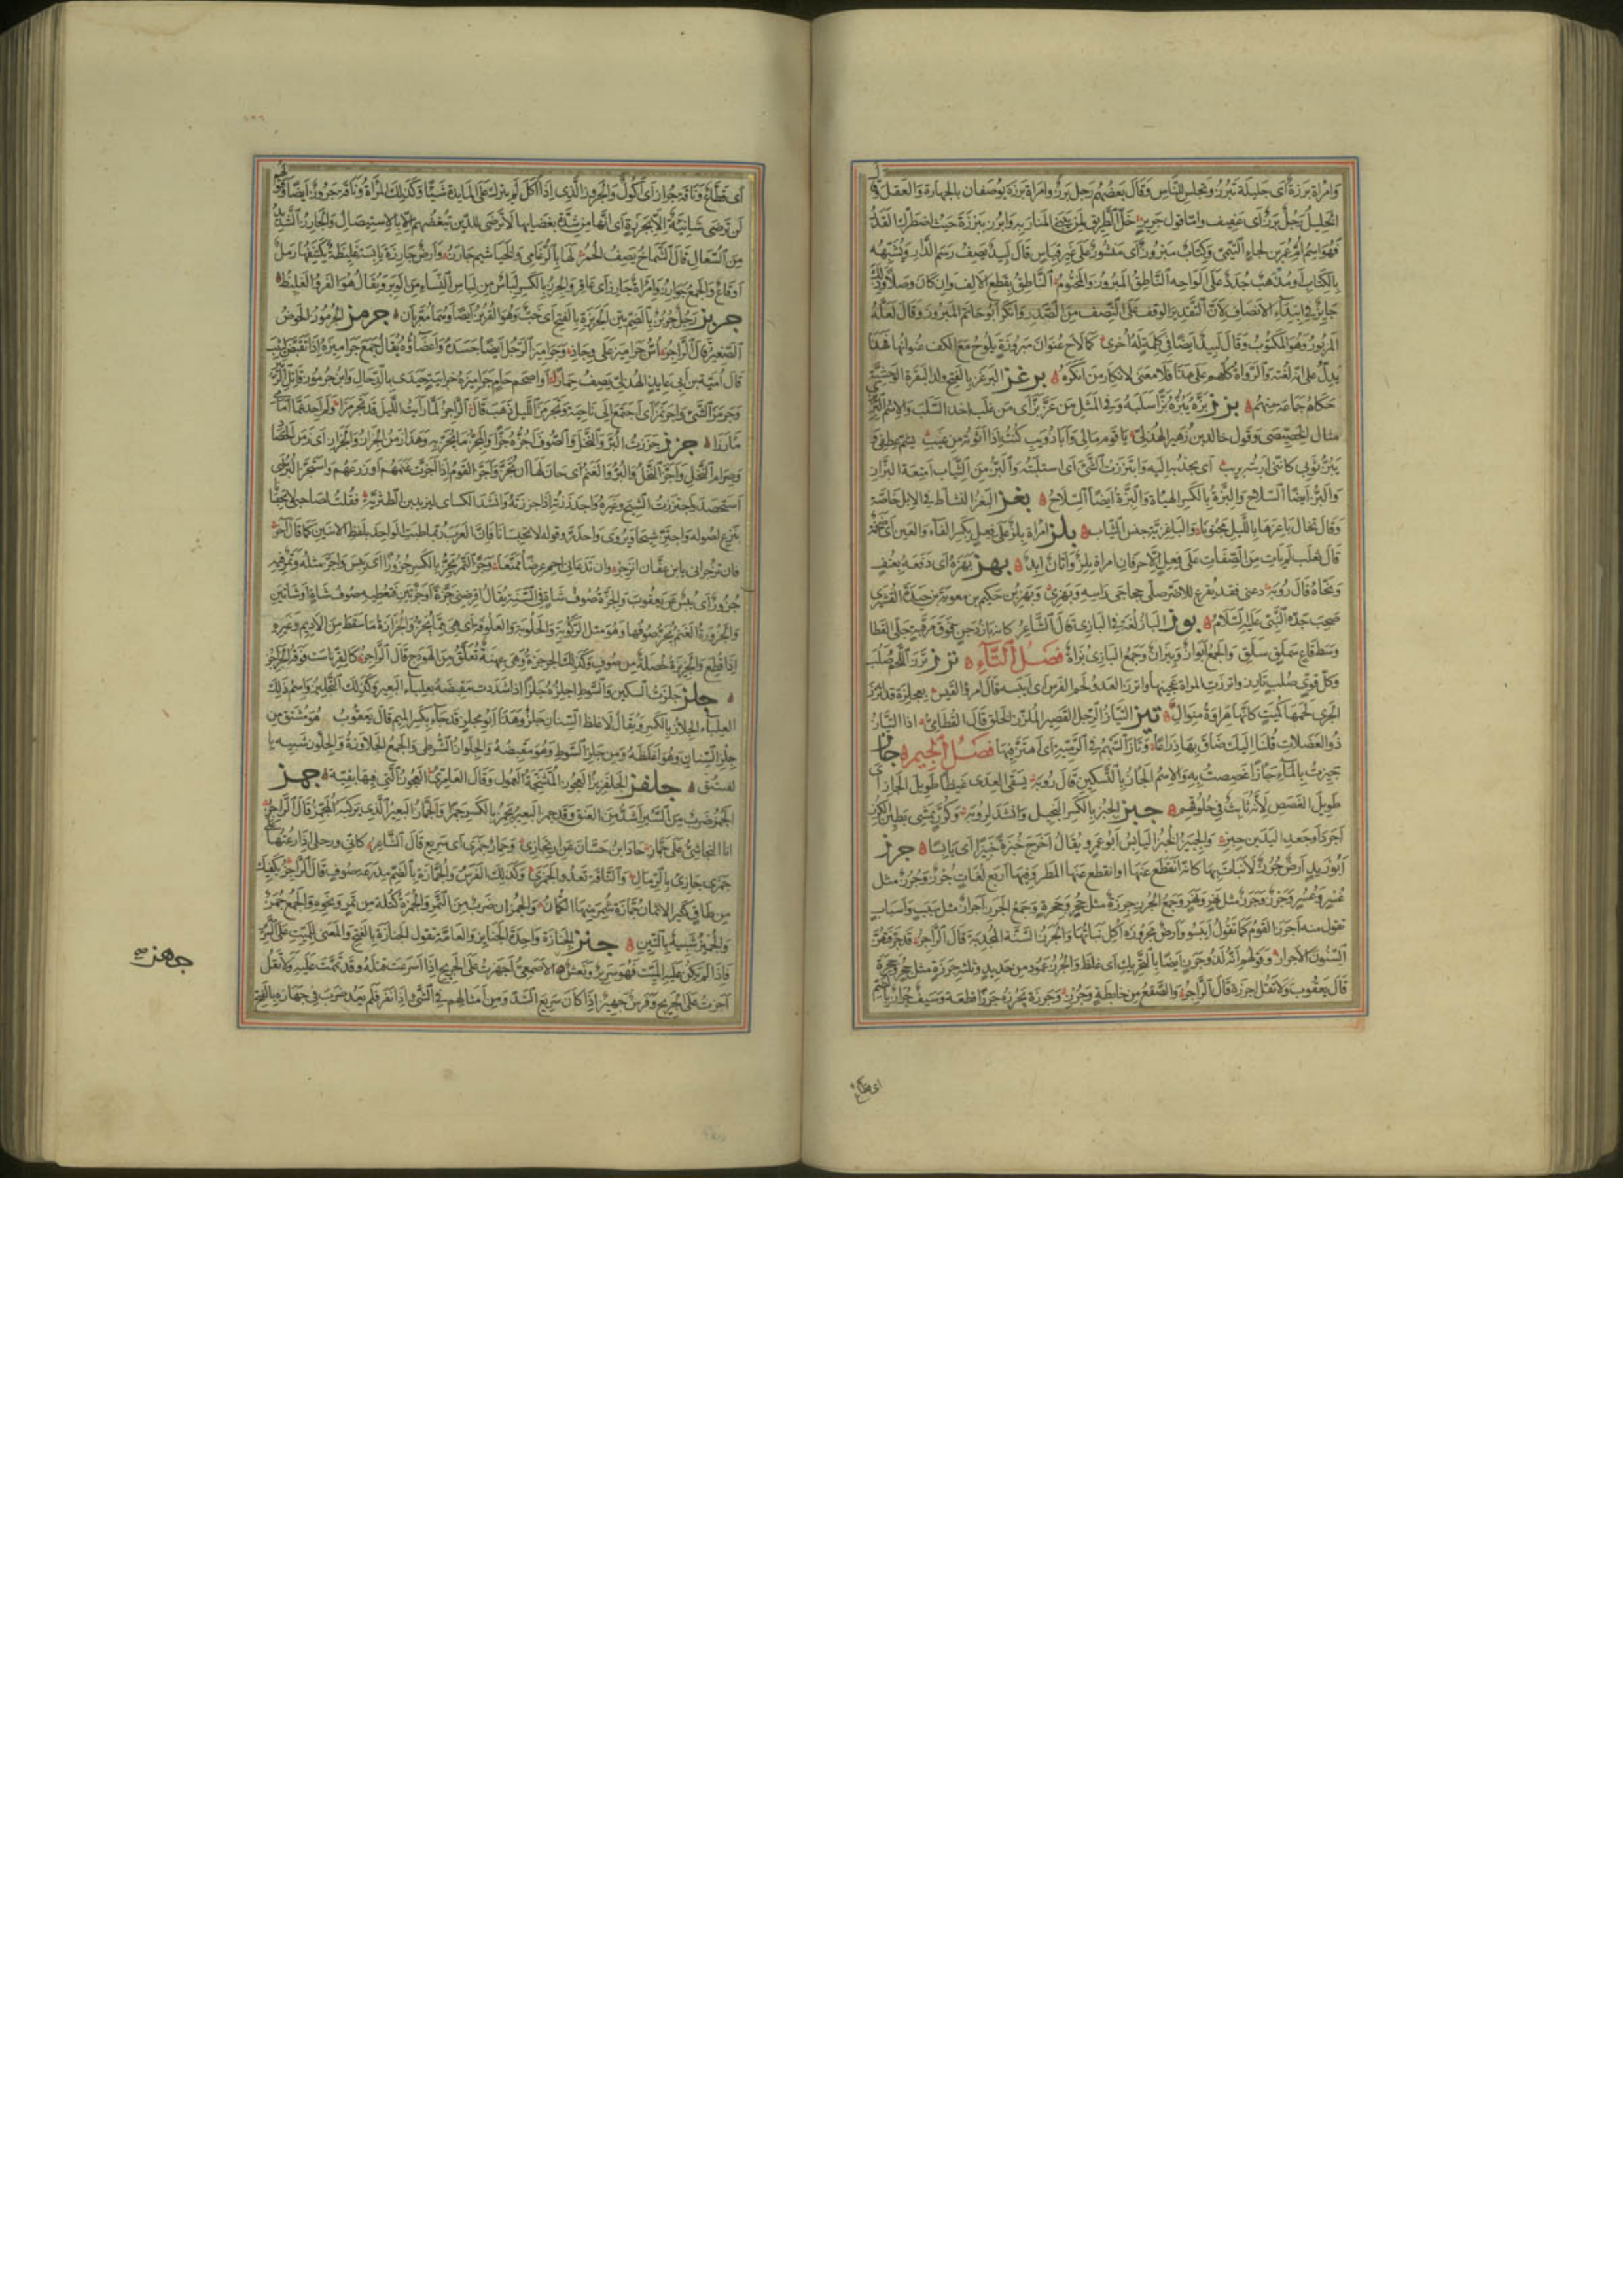 وامراة برزة أى جليلة تبرز وتجلس للناس وقال بعضهم رجل برز وامراة برزة يوصفان بالجهارة والعقل
فهو اسم أم عمر بن لجاء التيمى وكتاب مبرور أى منشور على غير قياس قال لبيد يصف رسم الدار ويشبهه
بالكتاب أو مذهب جدد على الواحه الناطق المبروز والمختوم الناطق بقطع الالف وان كان وصلا
جايز فى ابتداء الانصاف لان التقدير الوقف على النصف من الصدر وانكر أبو حاتم المبروز وقال لعله
المزبور وهو المكتوب وقال لبيد ايضا فى كلمة له أخرى كما لاح عنوان مبروزة يلوح مع الكف عنوانها فهذا
يدل على انه لغته والرواة كلهم على هذا فلا معنى لانكار من انكره برغز البرغز بالفتح ولد البقرة الوحشية
حكاه جماعة منهم بزز بزه يبزه بزا سلبه وفى المثل من عز بز أى من غلب اخذ السلب والاسم
مثال الخصيصى وقول خالد بن زهير الهذلى يا قوم مالى وأبا ذويب كنت إذا أتوته من غيب يشم عطفى
يبز ثوبى كاننى اربته بريب أى يجذبه اليه وابتززت الشئ أى استلبته والبز من الثياب امتعة البزاز
والبز أيضا السلاح والبزة بالكسر الهياة والبزة أيضا السلاح بغز البغز النشاط فى الابل خاصة
وقال تخال باغزها بالليل مجنونا والباغزية جنس من الثياب بلز امراة بلز على فعل بكسر الفاء والعين أى ضخمة
قال ثعلب لم يات من الصفات على فعل الا حرفان امراة بلز واتان ابد بهز بهزه أى دفعه بعنف
ونحاه قال روبة دعنى فقد يقرع للاضز صكى حجاجى راسه وبهزى وبهز بن حكيم بن معوية بن حيدة القشيرى
صحب جده النبى عليه السلام بوز الباز لغة فى البازى قال الشاعر كانه باز دجن فوق مرقبة جلى القطا
وسط قاع سملق سلق والجمع ابواز وبيزان وجمع البازى بزاة فصل التاء ترز ترز اللحم صلب
وكل قوى صلب تارز واترزت المراة عجينها واترز العدو لحم الفرس أى ايبسه قال امرؤ القيس بعجلزة قد اترز
الجرى لحمها كميت كانها هراوة منوال تيز التياز الرجل القصير الملزز الخلق قال القطامى اذا التياز
ذو العضلات قلنا اليك ضاق بها ذراعا وتاز السهم فى الرمية أى اهتز فيها فصل الجيم جاز
جيزت بالماء جازا غصصت به والاسم الجاز بالتسكين قال روبة يسقى العدى غيظا طويل الجاز أى
طويل الغصص لأنه ثابت فى حلوقهم جبز الجبز بالكسر البخيل وانشد لروبة وكرز يمشى بطين الكرز
اجرد أو جعد اليدين جبز والجبيز الخبز اليابس أبو عمرو يقال أخرج خبزه جبيزا أى يابسا جرز
أبو زيد ارض جرز لا نبات بها كانه انقطع عنها او انقطع عنها المطر وفيها اربع لغات جرز وجرز مثل
عسر وعسر وجرز وجرز مثل نهر ونهر وجمع الجرز جرزة مثل جحر وجحرة وجمع الجرز اجراز مثل سبب واسباب
تقول منه اجرز القوم كما تقول أيبسوا وأرض مجروزة أكل نباتها والجرز السنة المجدبة قال الراجز قد جرفتهن
السنون الاجراز وقولهم انه لذو جرز ايضا بالتحريك اى غلظ والجرز عمود من حديد وثلثة جرزة مثل جحر وجحرة
قال يعقوب ولا تقل اجرزة قال الراجز والصقع من خابطة وجرز وجرزه يجرزه جرزا قطعه وسيف جراز بالضم
أى قطاع
أى قطاع وناقة جراز أى أكول والجروز الذى إذا اكل لم يترك على المايدة شيئا وكذلك المراة وناقة جروز ايضا
لن ترضى شانية إلا بجرزة أى انها من شدة بغضايها لا ترضى للذين تبغضهم إلا بالاستيصال والجارز الشديد
من السعال قال الشماخ يصف الحمر لها بالرغامى والخياشيم جارز وأرض جارزة يابسة غليظة يكتنفها رمل
او قاع والجمع جوارز وامراة جارز أى عاقر والجرز بالكسر لباس من لباس النساء من الوبر ويقال هو الفرو الغليظ
جربز رجل جربز بالضم بين الجربزة بالفتح أى خب وهو القربز ايضا وهما معربان جرمز الجرموز الحوض
الصغير قال الراجز اس جراميز على وجاذ وجراميز الرجل ايضا جسده واعضاؤه يقال جمع جراميزه إذا تقبض ليثب
قال أمية بن أبى عايذ الهذلى يصف حمارا أو اصحم حام جراميزه حزابية حيدى بالدحال وابن جرموز قاتل الزبير
وجرمز الشئ واجرنمز أى اجتمع إلى ناحية وتجرمز الليل ذهب قال الراجز لما رايت الليل قد تجرمزا ولم اجد عما أمامى
مأرزا جزز جززت البر والنخل والصوف أجزه جزا والمجز ما يجز به وهذا زمن الجزاز والجزاز اى زمن الحصاد
وصرام النخل واجز النخل والبر والغنم أى حان لها أن تجز وأجز القوم إذا اجزت غنمهم أو زرعهم واستجز البر أى
استحصد واجتززت الشيح وغيره واجدززته إذا جززته وانشد الكساى ليزيد بن الطثرية فقلت لصاحبى لا تحبسنا
بنزع اصوله واجتز شيحا ويروى واجدز وقوله لا تحبسانا فان العرب ربما خاطبت الواحد بلفظ الاثنين كما قال آخر
فان تزجرانى يابن عفان انزجر وان تدعانى احم عرضا ممنعا وجز التمر يجز بالكسر جزوزا أى يبس واجز مثله وتمر فيه
جزوز أى يبس عن يعقوب والجزة صوف شاة فى السنة يقال اقرضنى جزة أو جزتين فتعطيه صوف شاة أو شاتين
والجزوزة الغنم يجز صوفها وهو مثل الركوبة والحلوبة والعلوفة أى هى مما يجز والجزازة ما سقط من الاديم وغيره
إذا قطع والجزيزة خصلة من صوف وكذلك الجزجزة وهى عهنة تعلق من الهودج قال الراجز كالقر ناست فوقه الجزاجز
جلز جلزت السكين والسوط اجلزه جلزا اذا شددت مقبضه بعلباء البعير وكذلك التجليز واسم ذلك
العلباء الجلاز بالكسر ويقال لاغلظ السنان جلز وهذا أبو مجلز قد جاء بكسر الميم قال يعقوب هو مشتق من
جلز السنان وهو اغلظه ومن جلز السوط وهو مقبضه والجلواز الشرطى والجمع الجلاوزة والجلوز شبيه با
لفستق جلفز الجلفزيز العجوز المتشنجة العمول وقال العامرى العجوز التى فيها بقية جمز
الجمز ضرب من السير اشد من العنق وقد جمز البعير يجمز بالكسر جمزا والجماز البعير الذى يركبه المجمز قال الراجز
انا النجاشى على جماز حاد ابن حسان عن ارتجازى وحمار جمزى أى سريع قال الشاعر كانى ورحلى إذا رعتها على
جمزى جازى بالرمال والناقة تعدو الجمزى وكذلك الفرس والجمازة بالضم مدرعة صوف قال الراجز يكفيك
من طاق كثير الاثمان جمازة شمر منها الكمان والجمزان ضرب من التمر والجمزة كتلة من تمر ونحوه والجمع جمز
والجميز شبيه بالتين جنز الجنازة واحدة الجنايز والعامة تقول الجنازة بالفتح والمعنى الميت على السرير
فإذا لم يكن عليه الميت فهو سرير ونعش جهز الاصمعى أجهزت على الجريح إذا اسرعت قتله وقد تممت عليه ولا تقل
اجزت على الجريح وفرس جهيز إذا كان سريع الشد ومن أمثالهم فى الشئ إذا نفر فلم يعد ضرب فى جهازه بالفتح
جهز صح